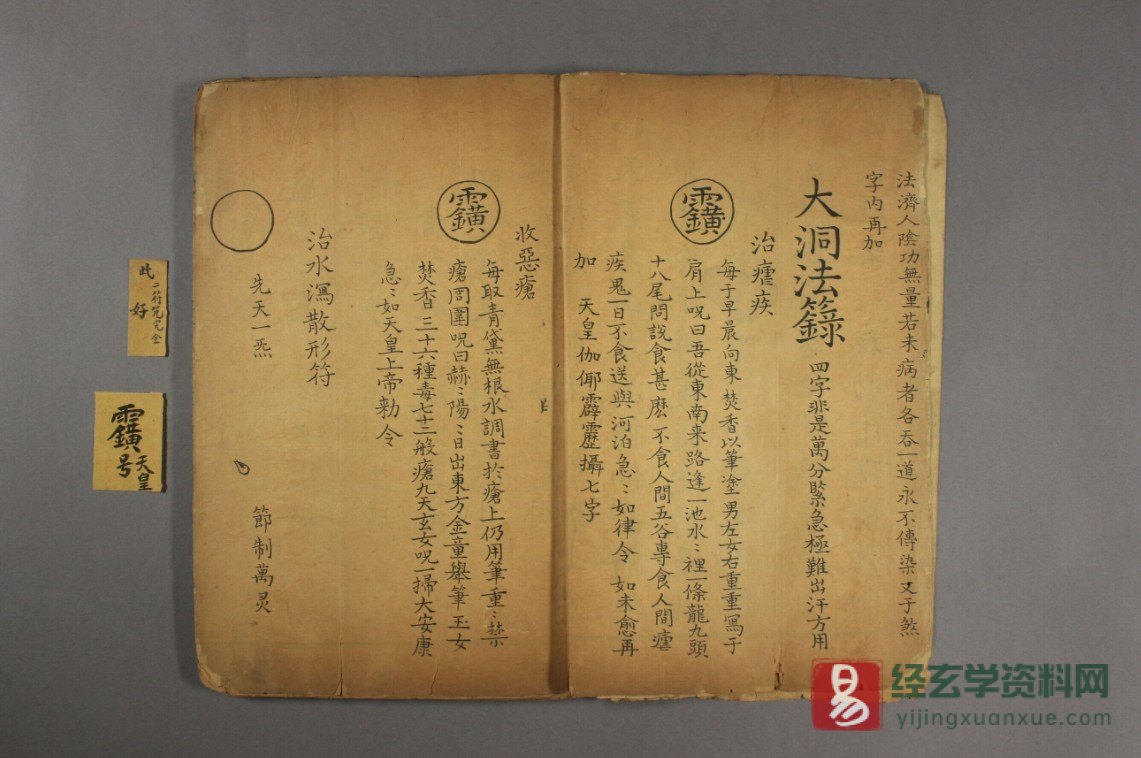 法濟人陰功無量若未病者各吞一道永不傳染又于煞
字內再加
大洞法籙 四字非是萬分緊急極難出汗方用
治瘧疾
每于早晨向東焚香以筆塗男左女右重重寫于
肩上咒曰吾從東南来路逢一池水〻裡一條龍九頭
十八尾問說食甚麽不食人間五谷專食人間瘧
疾鬼一日不食送與河泊急〻如律令 如未愈再
加 天皇伽倻霹靂攝七字
收惡瘡
每取青黛無根水調書於瘡上仍用筆重〻禁
瘡周圍咒曰赫〻陽〻日出東方金童舉筆玉女
焚香三十六種毒七十二般瘡九天玄女咒一掃大安康
急〻如天皇上帝勅令
治水瀉散形符
先天一炁 節制萬灵
此二符咒完全
好
天皇
号
易
经玄学资料网
yijingxuanxue.com